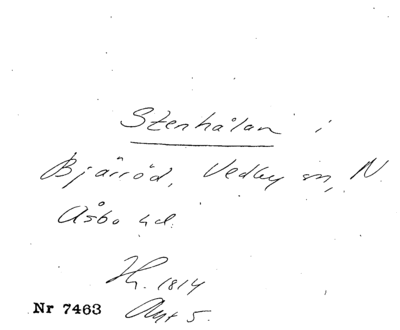 Stenhålan i
Bjärröd, Vedby sn, N
Åsbo hd.
Hz. 1814
Nr 7463 Avt 5.